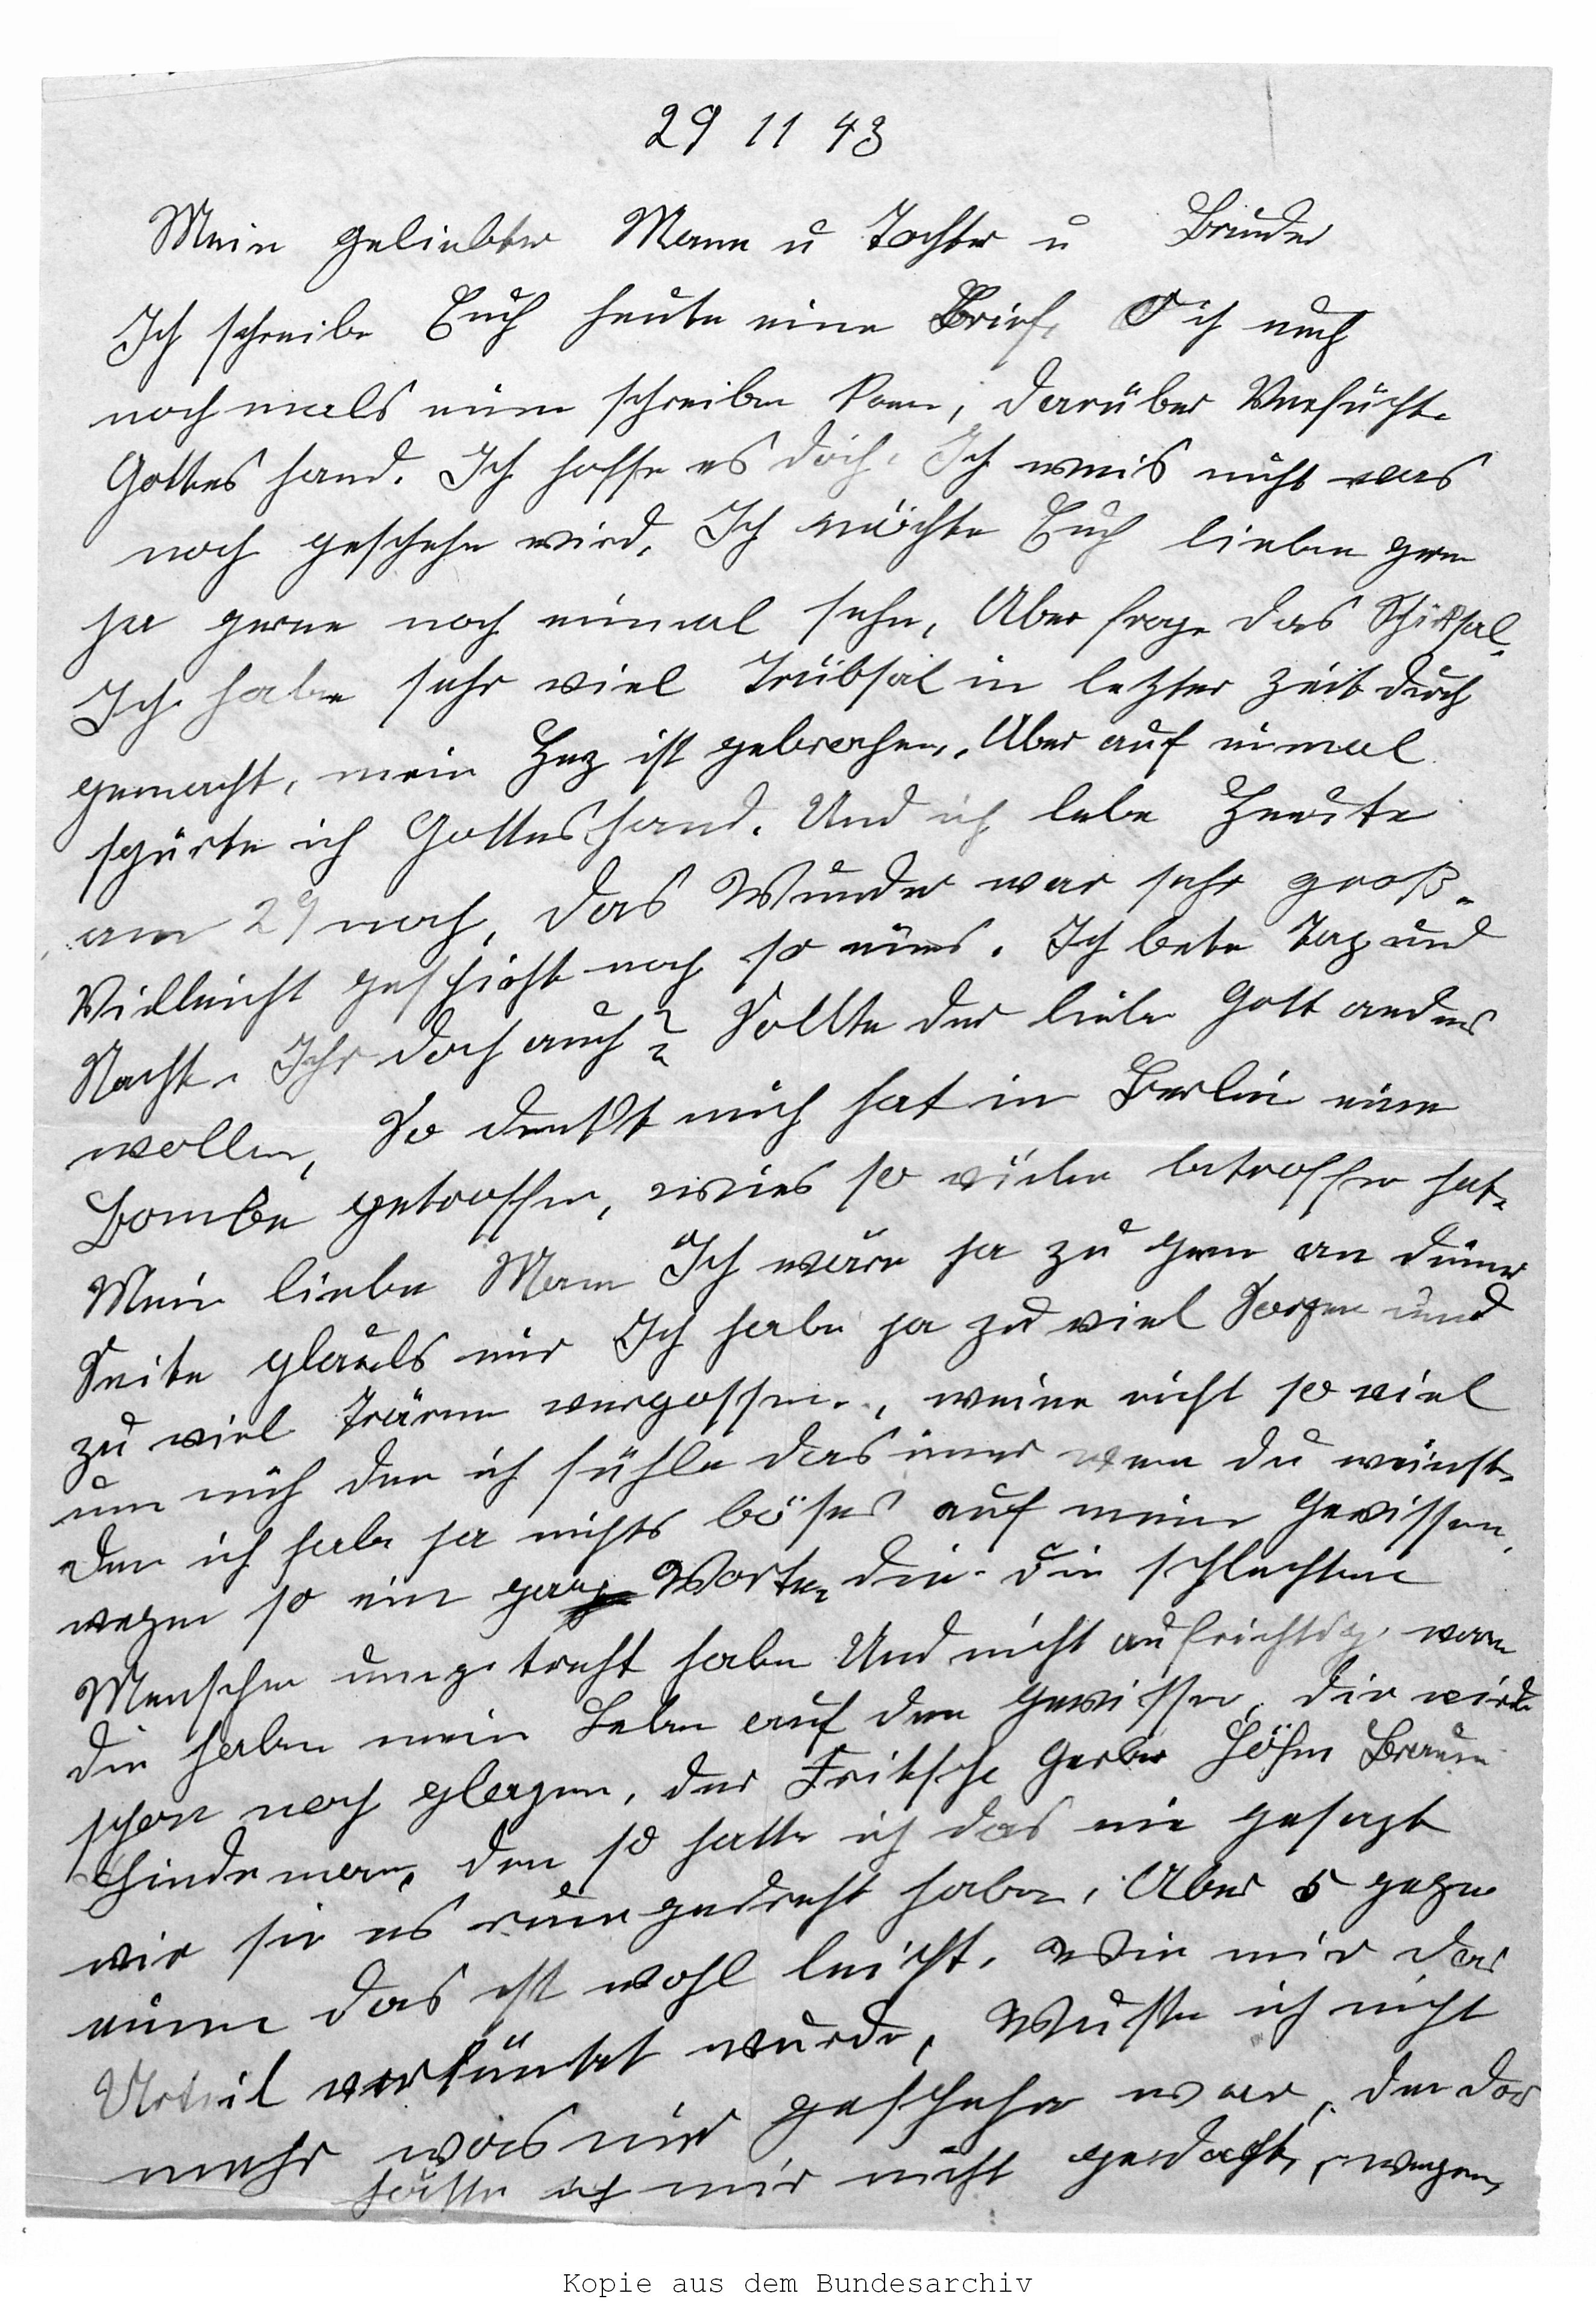 29 11 43
Mein geliebter Mann u Tochter u Bruder
Ich schreibe Euch heute eine Brief, Ob ich euch
noch mals einen schreiben kann, darüber
Gottes hand. Ich hoffe es doch. Ich weis nicht was
noch geschehn wird. Ich möchte Euch lieben gern
ja gerne noch einmal sehn, Aber frage das Schiksal.
Ich habe sehr viel Trübsal in letzter Zeit durch
gemacht, mein Herz ist gebrochen. Aber auf einmal
spürte ich Gottes hand. Und ich lebe Heute
am 29 noch, das Wunder war sehr groß.
Villeicht geschieht noch so eines. Ich bete Tag und
Nacht. Ihr doch auch? Sollte der liebe Gott anders
wollen, So denkt mich hat in Berlin eine
Bombe getroffen, wies so viele betroffen hat.
Mein liebe Mann Ich wäre ja zu gern an deiner
Seite glaubs mir Ich habe ja zu viel Sorgen und
zu viel Tränen vergossen., weine nicht so viel
um mich den ich fühle das imer wen du weinst.
Den ich habe ja nichts böses auf mein Gewissen,
wegen so ein par Worte, die die schlechten
Menschen umgetreht habe Und nicht aufrichtig waren
die haben mein Leben auf den Gewissen, die wird
schon noch plagen, der Fritsche Gerber Höhn Braun
den so hatte ich das nie gesagt
wie sie es rumgedreht haben. Aber 5 gegen
einen das ist wohl leicht. Wie mir das
Urteil verküntet wurde, Wuste ich nicht
mehr was mir geschehn war, den das
hätte ich mir nicht gedacht, wegen
Kopie aus dem Bundesarchiv